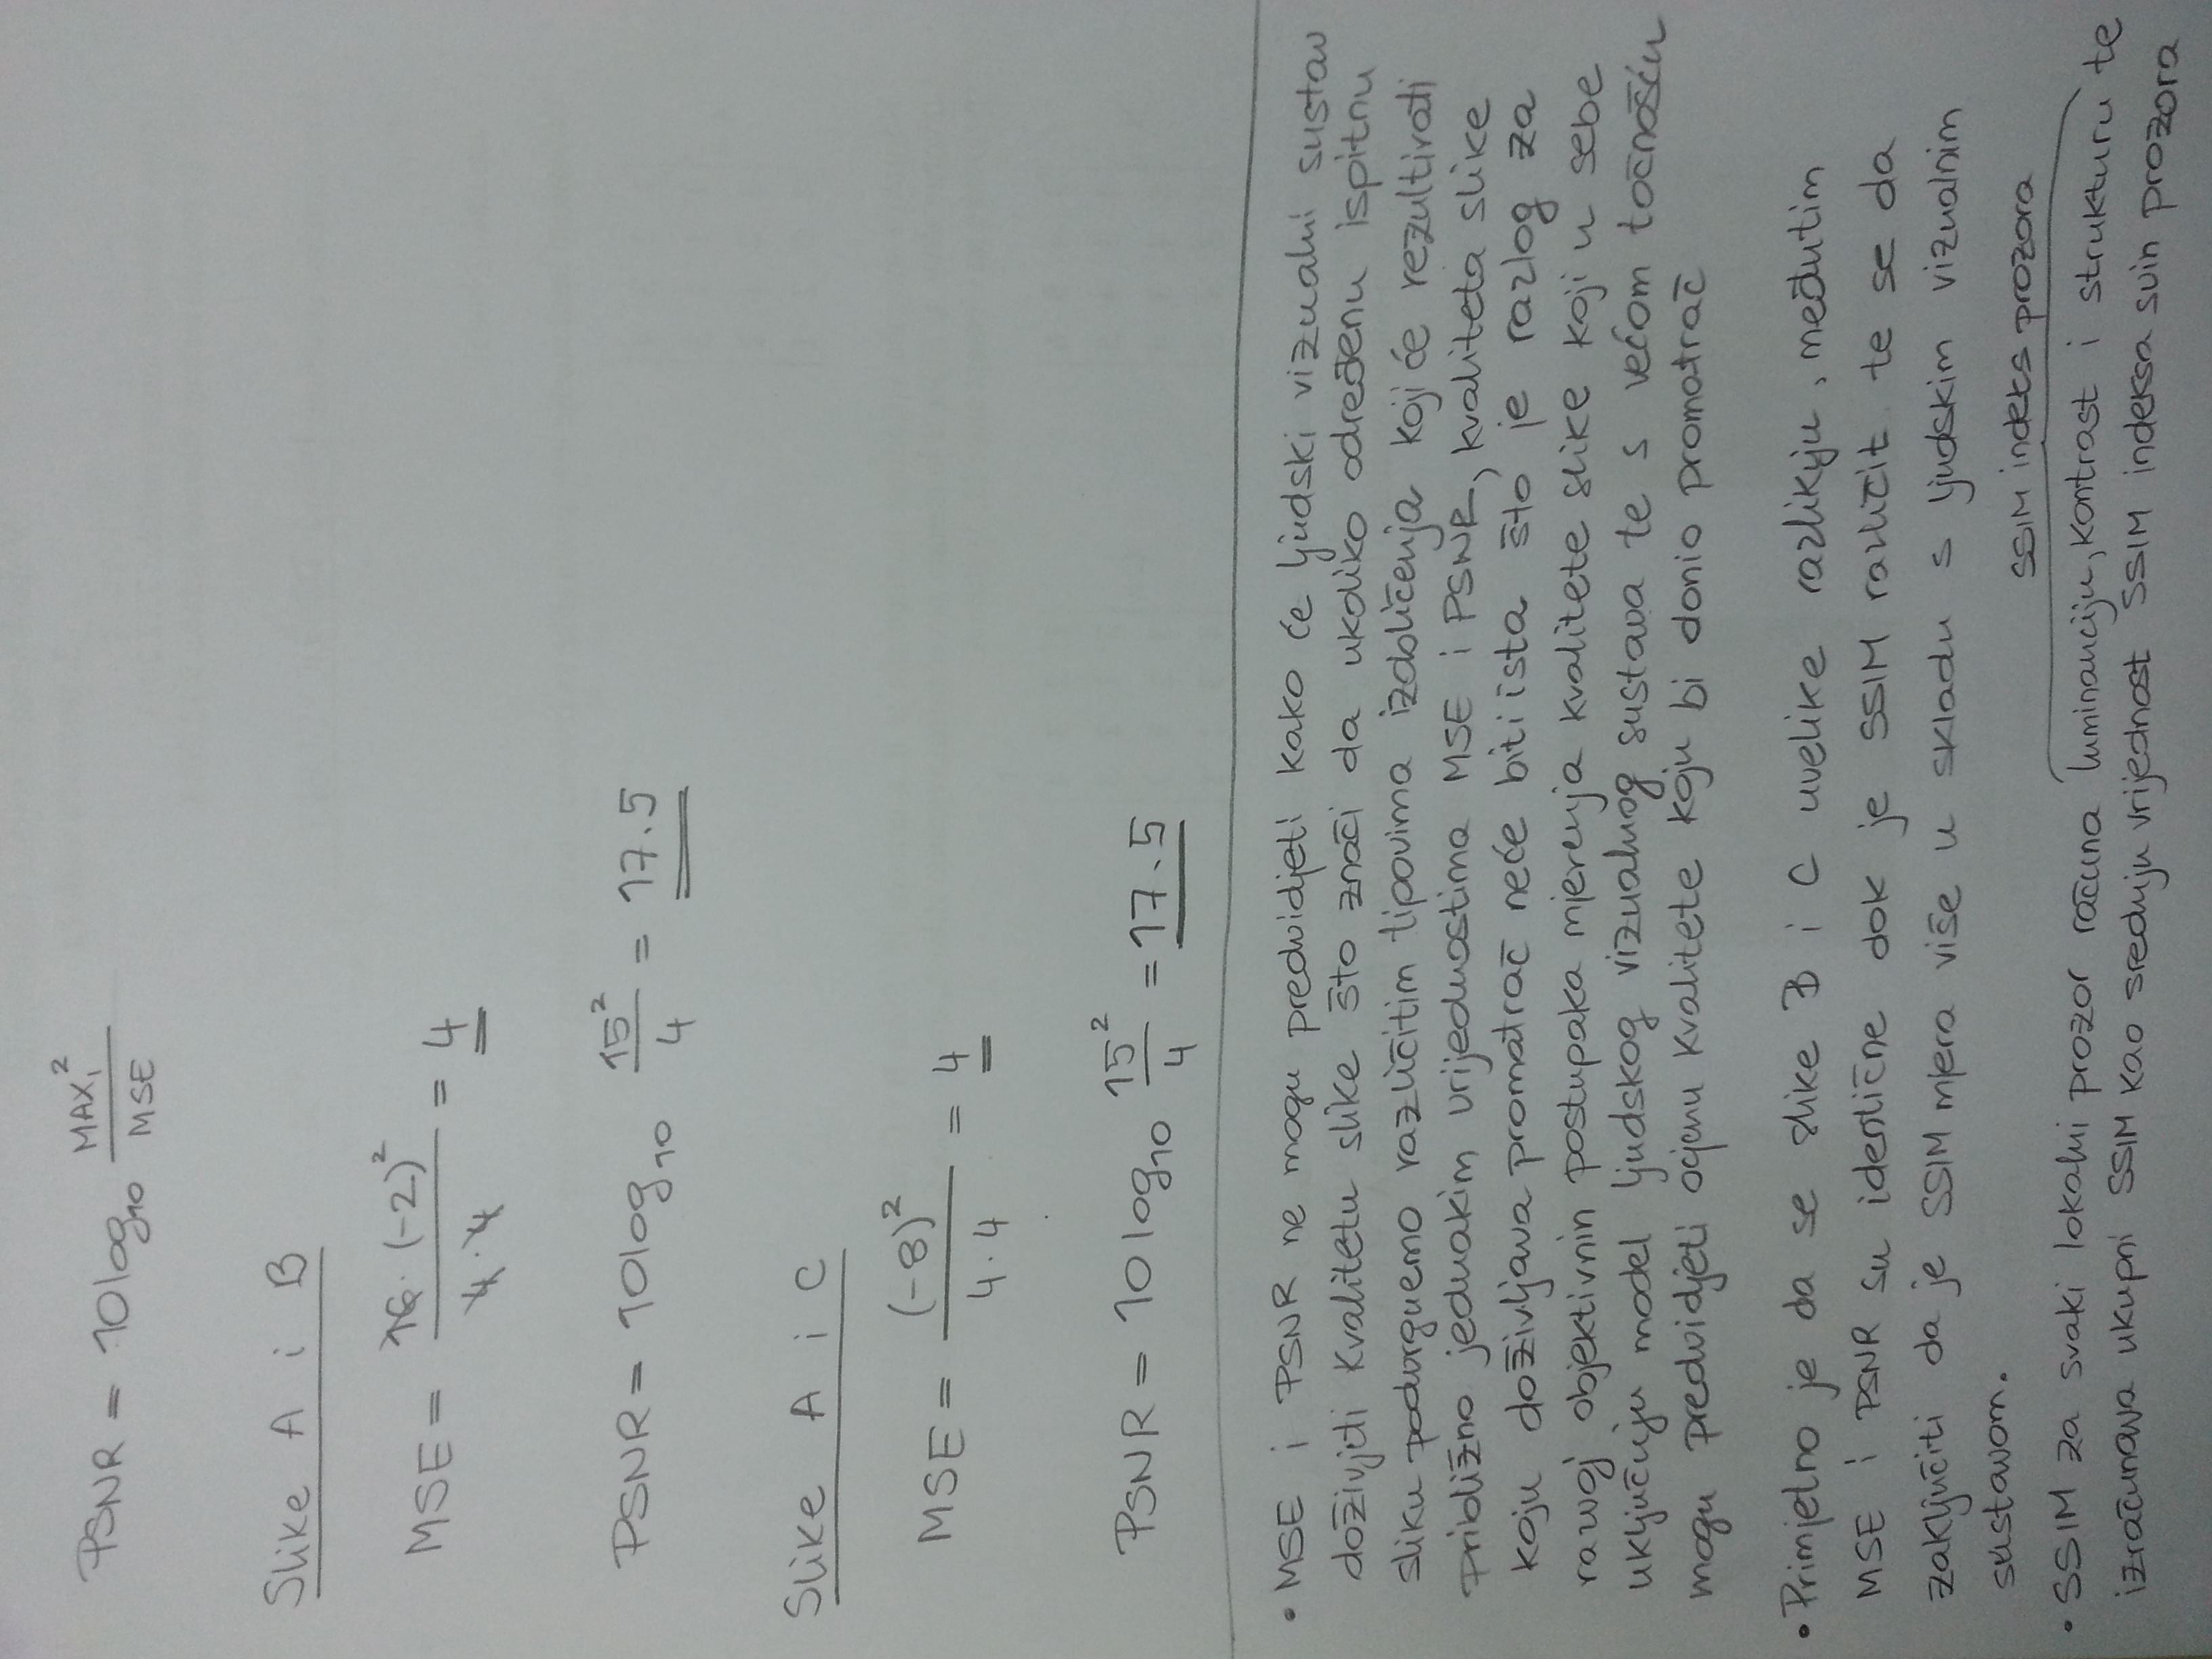 PSNR = 10log₁₀ MAX₁² / MSE
Slike A i B
MSE = 16·(-2)² / 4·4 = 4
PSNR = 10log₁₀ 15² / 4 = 17.5
Slike A i C
MSE = (-8)² / 4·4 = 4
PSNR = 10log₁₀ 15² / 4 = 17.5
• MSE i PSNR ne mogu predvidjeti kako će ljudski vizualni sustav
doživjeti kvalitetu slike što znači da ukoliko određenu ispitnu
sliku podvrgnemo različitim tipovima izobličenja koji će rezultirati
približno jednakim vrijednostima MSE i PSNR, kvaliteta slike
koju doživljava promatrač neće biti ista što je razlog za
razvoj objektivnih postupaka mjerenja kvalitete slike koji u sebe
uključuju model ljudskog vizualnog sustava te s većom točnošću
mogu predvidjeti ocjenu kvalitete koju bi donio promatrač
• Primjetno je da se slike B i C uvelike razlikuju, međutim
MSE i PSNR su identične dok je SSIM različit te se da
zaključiti da je SSIM mjera više u skladu s ljudskim vizualnim
sustavom.
SSIM indeks prozora
• SSIM za svaki lokalni prozor računa luminanciju, kontrast i strukturu te
izračunava ukupni SSIM kao srednju vrijednost SSIM indeksa svih prozora